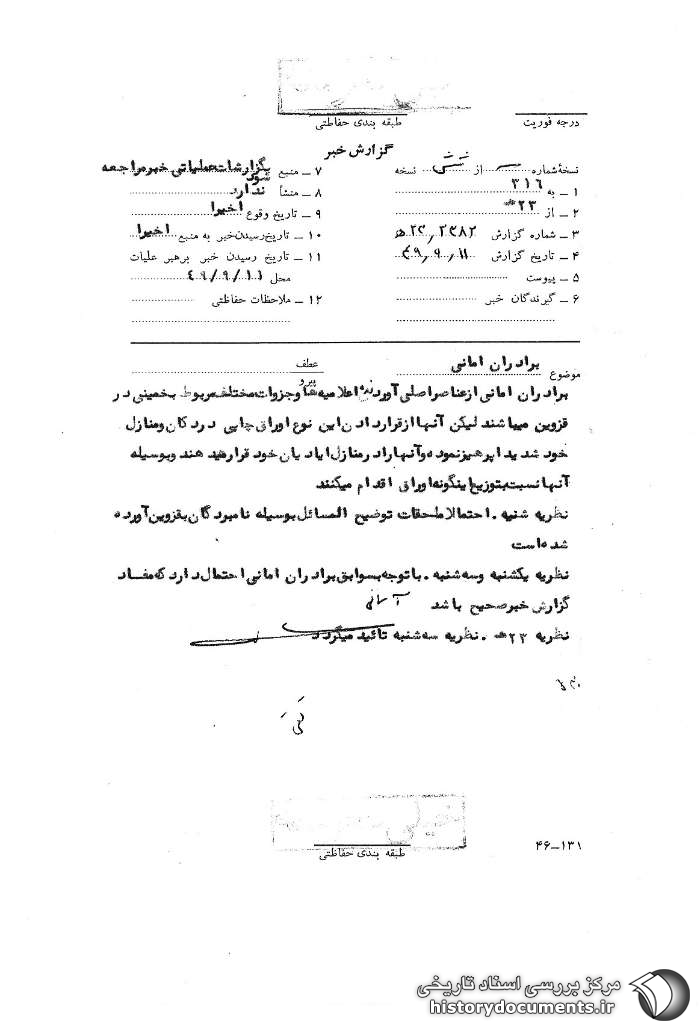 طبقه بندی حفاظتی
درجه فوریت
گزارش خبر
نسخهٔ شماره از شش نسخه
۱ ـ به ۳۱۶
۲ ـ از ۲۳ هـ
۳ ـ شماره گزارش ۲۳/۲۳۸۲ هـ
۴ ـ تاریخ گزارش ۴۹٫۹٫۱۱
۵ ـ پیوست
۶ ـ گیرندگان خبر
۷ ـ منبع بگزارشات عملیاتی خبر مراجعه شود
۸ ـ منشأ ندارد
۹ ـ تاریخ وقوع اخیرا
۱۰ ـ تاریخ رسیدن خبر به منبع اخیرا
۱۱ ـ تاریخ رسیدن خبر برهبر عملیات
محل ۴۹/۹/۱۱
۱۲ ـ ملاحظات حفاظتی
موضوع برادران امانی
عطف
پیرو
برادران امانی از عناصر اصلی آورنده اعلامیه ها و جزوات مختلف مربوط بخمینی در
قزوین میباشند لیکن آنها از قراردادن این نوع اوراق چاپی در دکان و منازل
خود شدیدا پرهیز نموده و آنها را در منازل ایادیان خود قرار میدهند و بوسیله
آنها نسبت بتوزیع اینگونه اوراق اقدام میکنند
نظریه شنبه . احتمالا ملحقات توضیح المسائل بوسیله نامبردگان بقزوین آورده
شده است
نظریه یکشنبه و سه شنبه . با توجه بسوابق برادران امانی احتمال دارد که مفاد
گزارش خبر صحیح باشد
نظریه ۲۳ هـ . نظریه سه شنبه تائید میگردد
طبقه بندی حفاظتی
۴۶ـ۱۳۱
مرکز بررسی اسناد تاریخی
historydocuments.ir